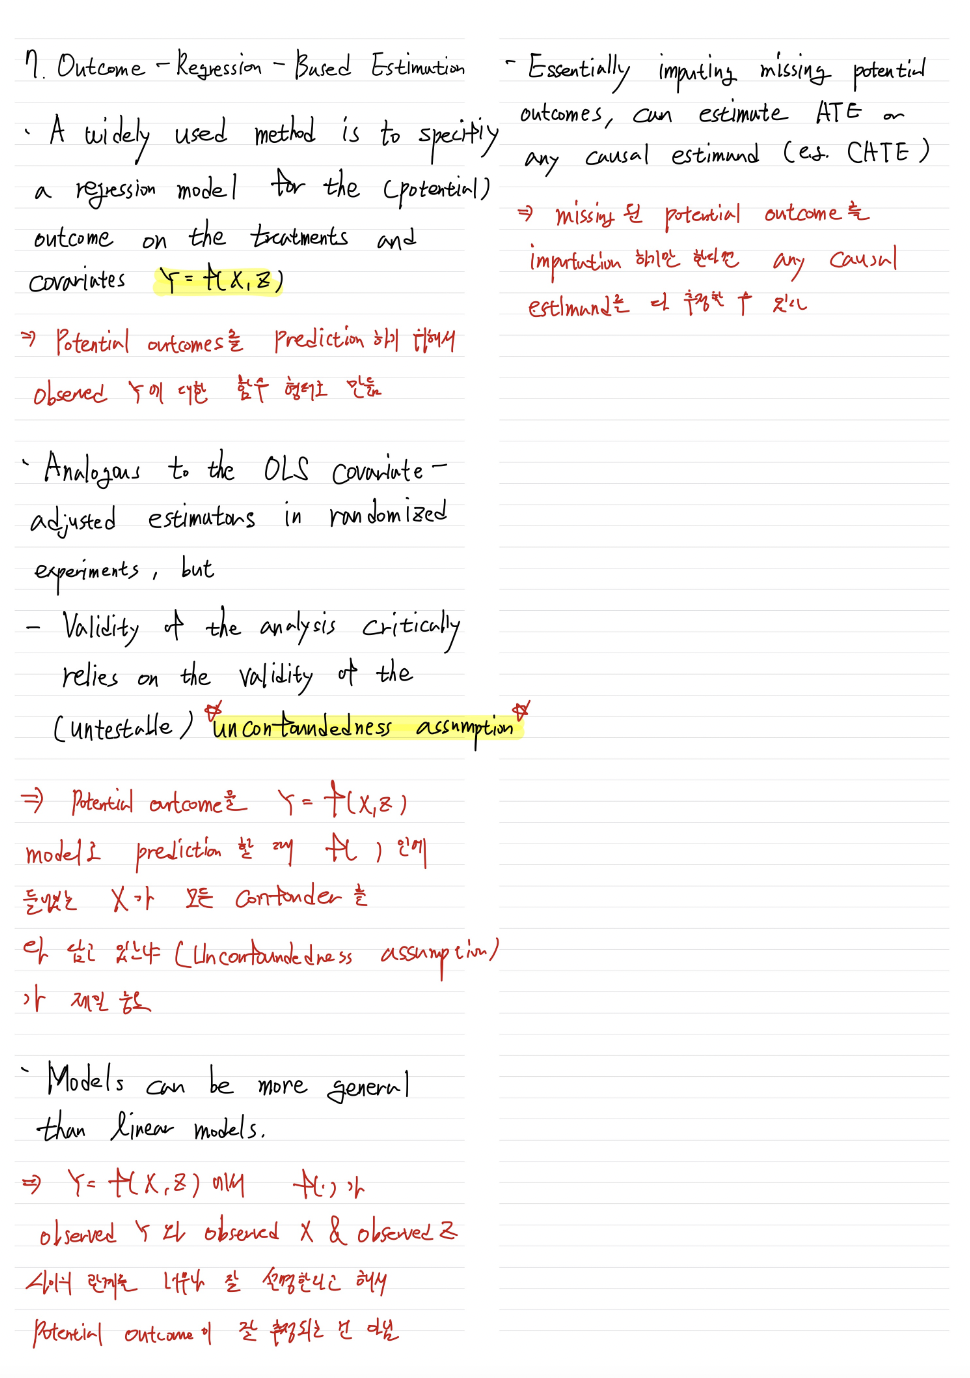 7. Outcome - Regression - Based Estimation
· A widely used method is to specify
a regression model for the (potential)
outcome on the treatments and
covariates Y = f(X, Z)
⇒ Potential outcomes를 prediction 하기 위해서
observed Y에 대한 함수 형태로 만듦
· Analogous to the OLS covariate-
adjusted estimators in randomized
experiments, but
- Validity of the analysis critically
relies on the validity of the
(untestable) ☆unconfoundedness assumption☆
⇒ Potential outcome을 Y = f(X,Z)
model로 prediction 할 때 f( ) 안에
들어있는 X가 모든 confounder를
다 담고 있느냐 (Unconfoundedness assumption)
가 제일 중요
· Models can be more general
than linear models.
⇒ Y = f(X, Z) 에서 f(·)가
observed Y와 observed X & observed Z
사이의 관계를 너무나 잘 설명한다고 해서
Potential outcome이 잘 추정되는 건 아님
- Essentially imputing missing potential
outcomes, can estimate ATE or
any causal estimand (e.g. CATE)
⇒ missing 된 potential outcome을
imputation 하기만 한다면 any causal
estimand를 다 추정할 수 있다